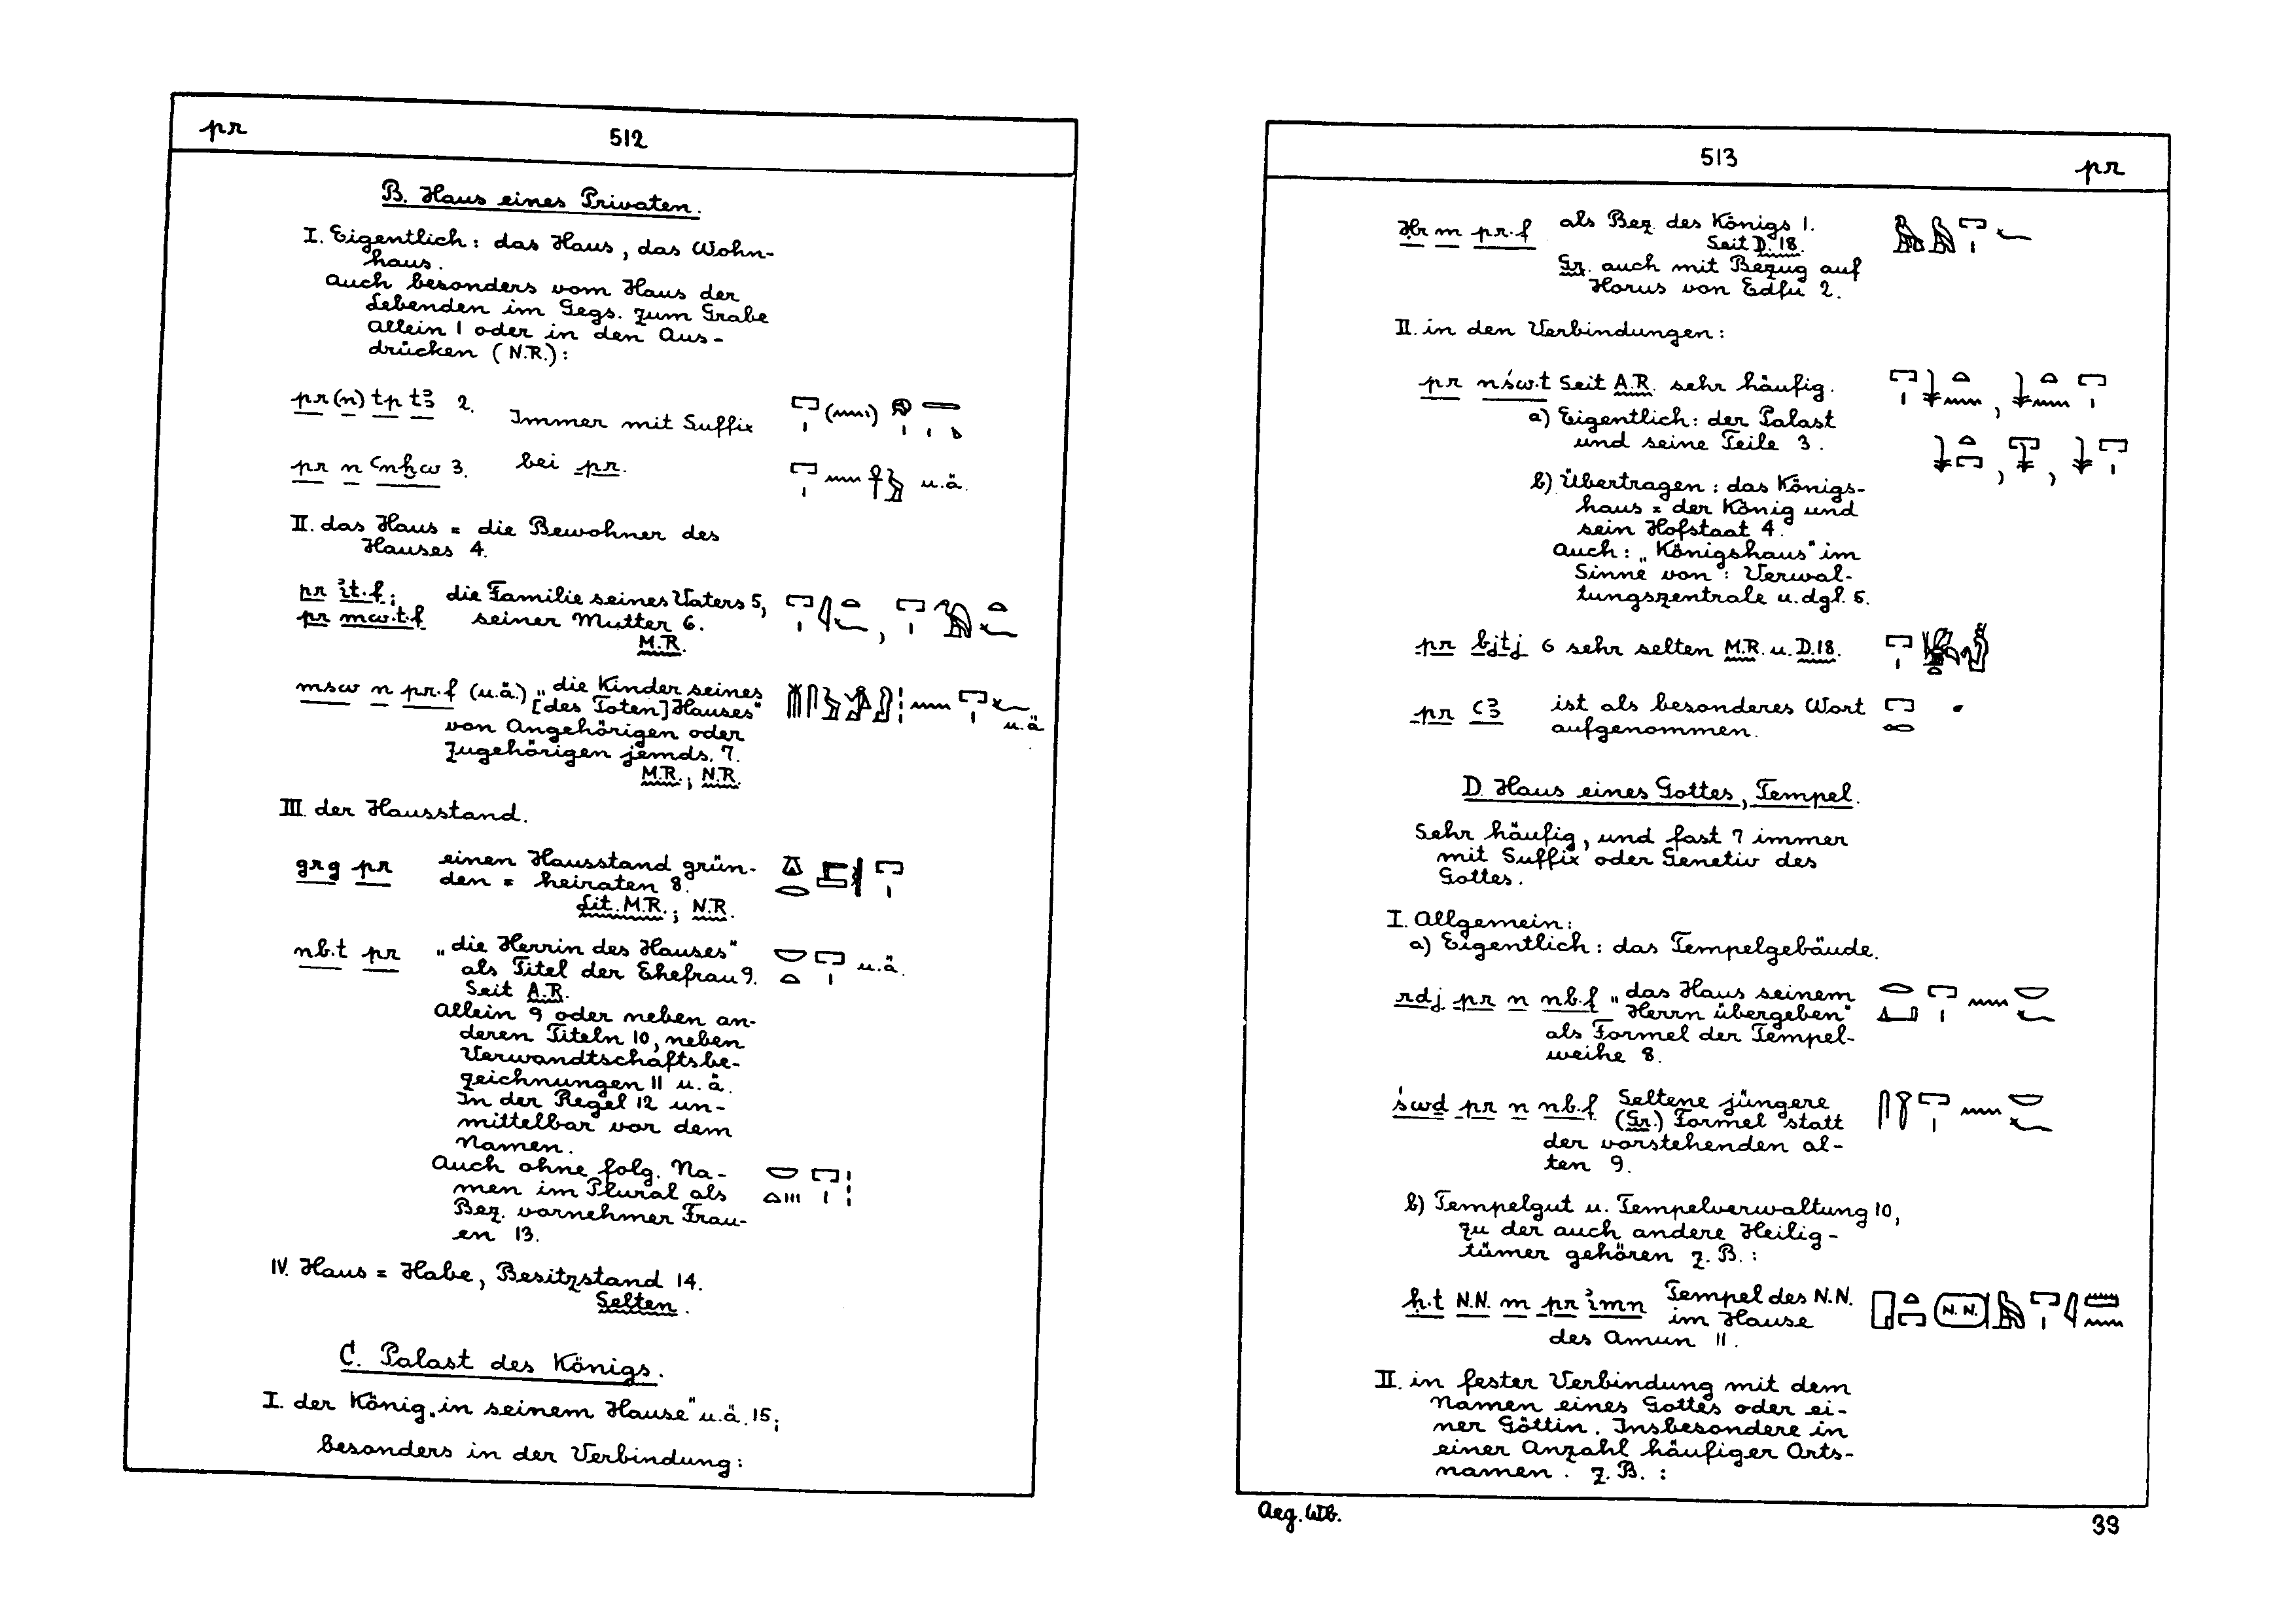 pr 512
B. Haus eines Privaten.
I. Eigentlich: das Haus, das Wohn-
haus.
Auch besonders vom Haus der
Lebenden im Gegs. zum Grabe
allein 1 oder in den Aus-
drücken (N.R.):
pr (n) tp tꜣ 2. Immer mit Suffix
pr n ꜥnḫw 3. bei pr. u.ä.
II. das Haus = die Bewohner des
Hauses 4.
pr ỉt.f; die Familie seines Vaters 5,
pr mw.t.f seiner Mutter 6.
M.R.
msw n pr.f (u.ä.) „die Kinder seines
[des Toten] Hauses" u.ä
von Angehörigen oder
Zugehörigen jemds. 7.
M.R.; N.R.
III. der Hausstand.
grg pr einen Hausstand grün-
den = heiraten 8.
Lit. M.R.; N.R.
nb.t pr „die Herrin des Hauses" u.ä.
als Titel der Ehefrau 9.
Seit A.R.
Allein 9 oder neben an-
deren Titeln 10, neben
Verwandtschaftsbe-
zeichnungen 11 u. ä.
In der Regel 12 un-
mittelbar vor dem
Namen.
Auch ohne folg. Na-
men im Plural als
Bez. vornehmer Frau-
en 13.
IV. Haus = Habe, Besitzstand 14.
Selten.
C. Palast des Königs.
I. der König „in seinem Hause" u.ä. 15;
besonders in der Verbindung:
513 pr
Ḥr m pr.f als Bez. des Königs 1.
Seit D. 18.
Gr. auch mit Bezug auf
Horus von Edfu 2.
II. in den Verbindungen:
pr nśw.t Seit A.R. sehr häufig.
a) Eigentlich: der Palast
und seine Teile 3.
b) Übertragen: das Königs-
haus = der König und
sein Hofstaat 4.
Auch: „Königshaus" im
Sinne von: Verwal-
tungszentrale u. dgl. 5.
pr bjtj 6 sehr selten M.R. u. D.18.
pr ꜥꜣ ist als besonderes Wort
aufgenommen.
D. Haus eines Gottes, Tempel.
Sehr häufig, und fast 7 immer
mit Suffix oder Genetiv des
Gottes.
I. Allgemein:
a) Eigentlich: das Tempelgebäude.
rdj pr n nb.f „das Haus seinem
Herrn übergeben"
als Formel der Tempel-
weihe 8.
św​d pr n nb.f Seltene jüngere
(Gr.) Formel statt
der vorstehenden al-
ten 9.
b) Tempelgut u. Tempelverwaltung 10,
zu der auch andere Heilig-
tümer gehören z. B.:
ḥ.t N.N. m pr ỉmn Tempel des N.N. N. N.
im Hause
des Amun 11.
II. in fester Verbindung mit dem
Namen eines Gottes oder ei-
ner Göttin. Insbesondere in
einer Anzahl häufiger Orts-
namen. z. B.:
Aeg. Wb. 39